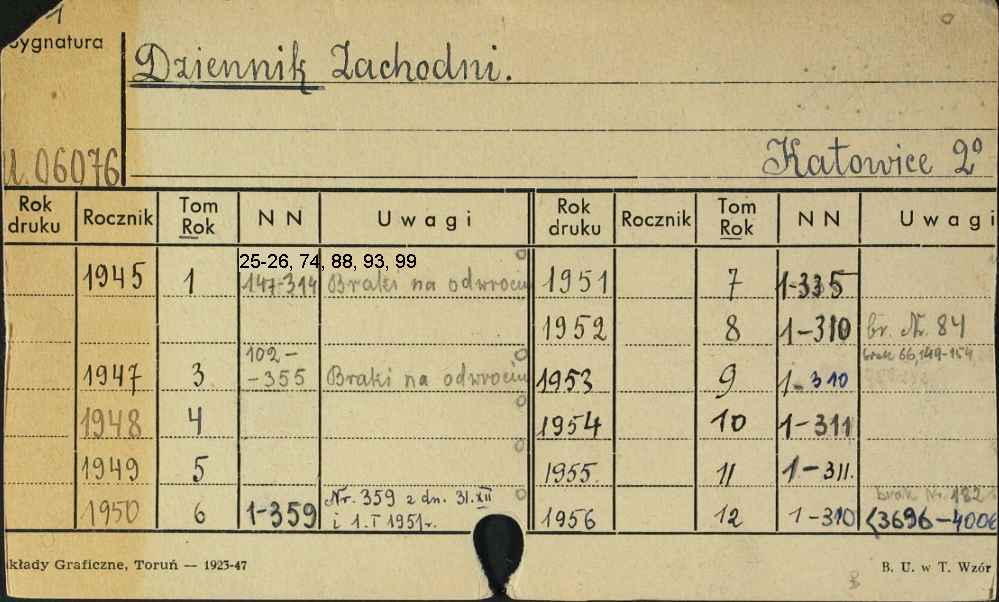 Sygnatura
Dziennik Zachodni.
U.06076
Katowice 2°
Rok druku Rocznik Tom Rok NN Uwagi Rok druku Rocznik Tom Rok NN Uwagi
25-26, 74, 88, 93, 99
1945 1 147-314 Braki na odwrociu 1951 7 1-335
1952 8 1-310 br. Nr. 84
102- brak 66,149-154
1947 3 -355 Braki na odwrociu 1953 9 1-310
1948 4 1954 10 1-311
1949 5 1955. 11 1-311.
1950 6 1-359 Nr. 359 z dn. 31.XII brak Nr. 182
i 1.I 1951r. 1956 12 1-310 (3696-4006
kłady Graficzne, Toruń — 1923-47 B. U. w T. Wzór